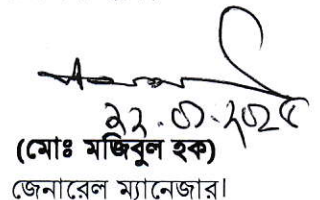 ২২.০১.২০২৫
(মোঃ মজিবুল হক)
জেনারেল ম্যানেজার।